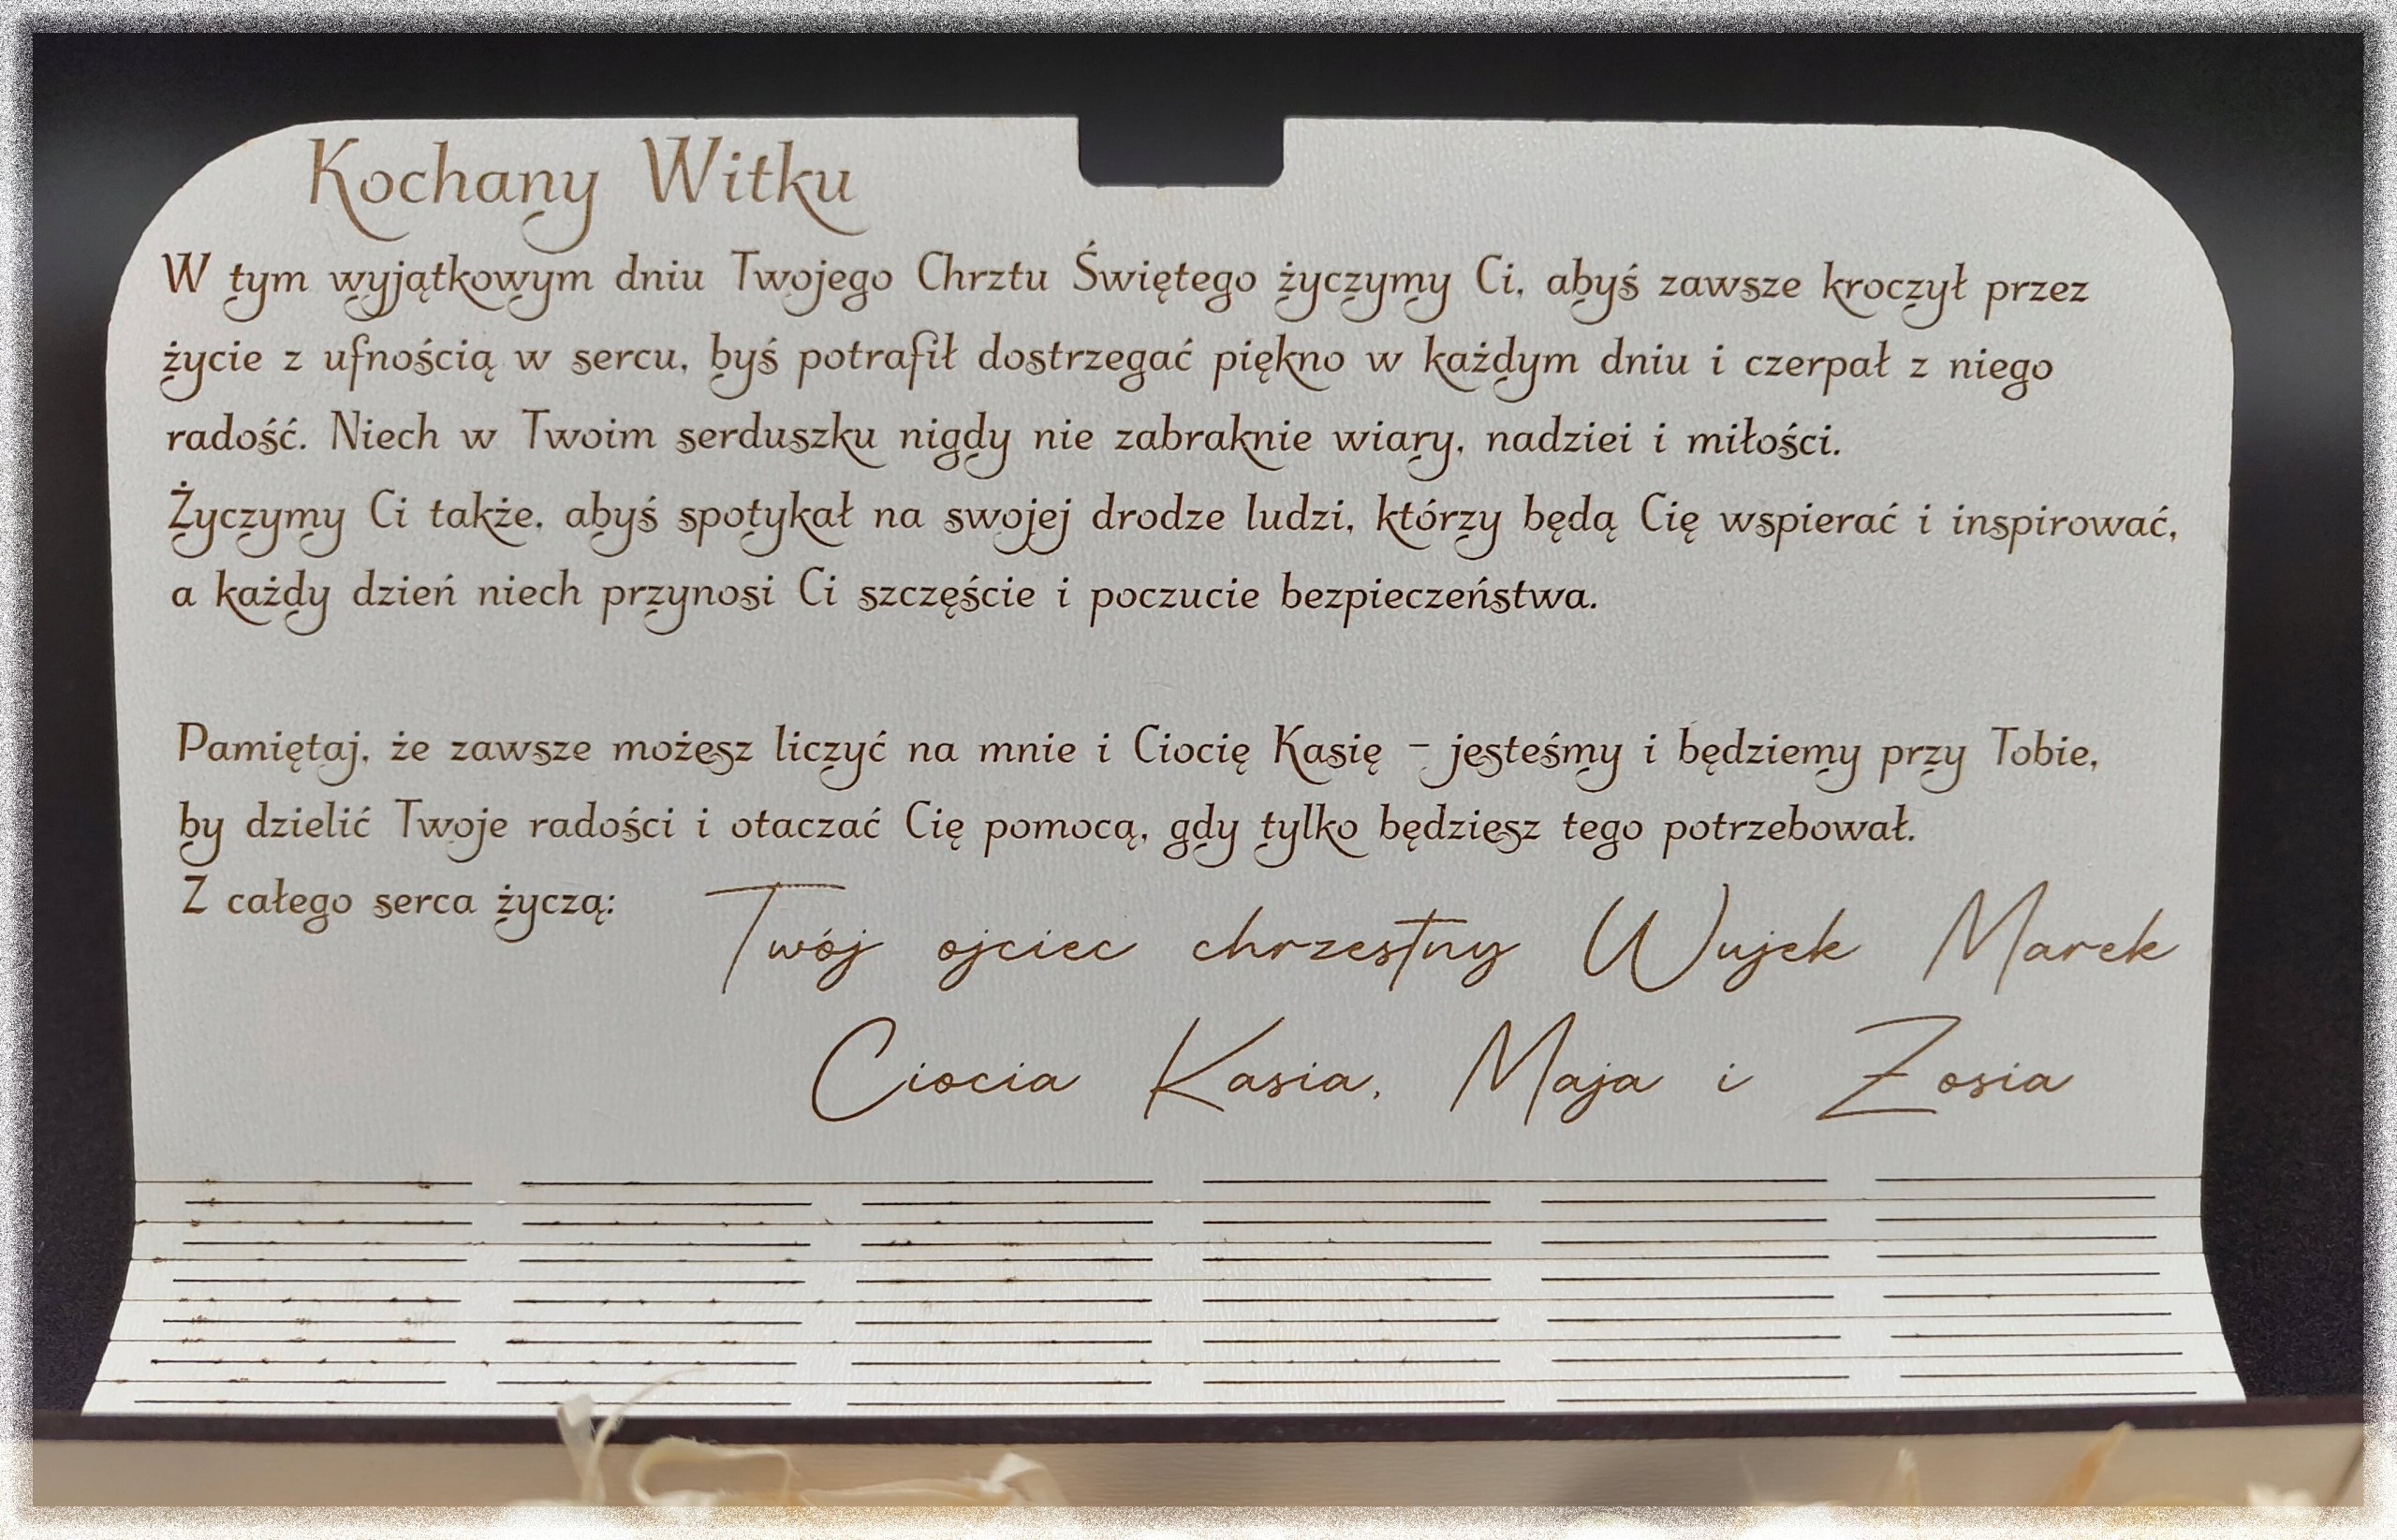 Kochany Witku
W tym wyjątkowym dniu Twojego Chrztu Świętego życzymy Ci, abyś zawsze kroczył przez
życie z ufnością w sercu, byś potrafił dostrzegać piękno w każdym dniu i czerpał z niego
radość. Niech w Twoim serduszku nigdy nie zabraknie wiary, nadziei i miłości.
Życzymy Ci także, abyś spotykał na swojej drodze ludzi, którzy będą Cię wspierać i inspirować,
a każdy dzień niech przynosi Ci szczęście i poczucie bezpieczeństwa.
Pamiętaj, że zawsze możesz liczyć na mnie i Ciocię Kasię – jesteśmy i będziemy przy Tobie,
by dzielić Twoje radości i otaczać Cię pomocą, gdy tylko będziesz tego potrzebował.
Z całego serca życzą: Twój ojciec chrzestny Wujek Marek
Ciocia Kasia, Maja i Zosia